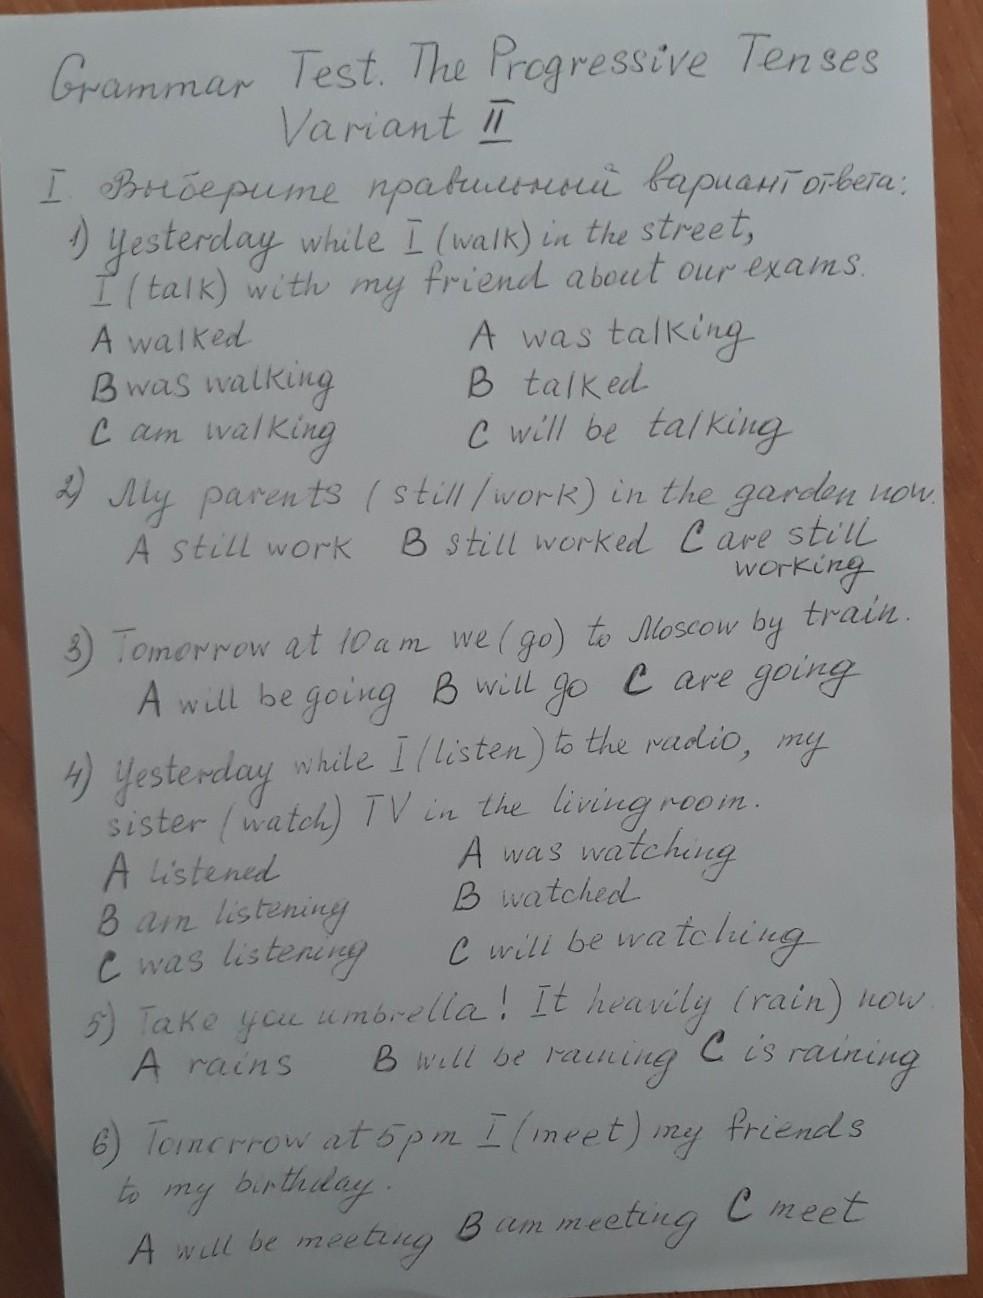 Grammar Test. The Progressive Tenses
Variant II
I. Выберите правильный вариант ответа:
1) Yesterday while I (walk) in the street,
I (talk) with my friend about our exams.
A walked A was talking
B was walking B talked
C am walking C will be talking
2) My parents (still/work) in the garden now.
A still work B still worked C are still
working
3) Tomorrow at 10 am we (go) to Moscow by train.
A will be going B will go C are going
4) Yesterday while I (listen) to the radio, my
sister (watch) TV in the living room.
A listened A was watching
B am listening B watched
C was listening C will be watching
5) Take you umbrella! It heavily (rain) now.
A rains B will be raining C is raining
6) Tomorrow at 5 pm I (meet) my friends
to my birthday.
A will be meeting B am meeting C meet